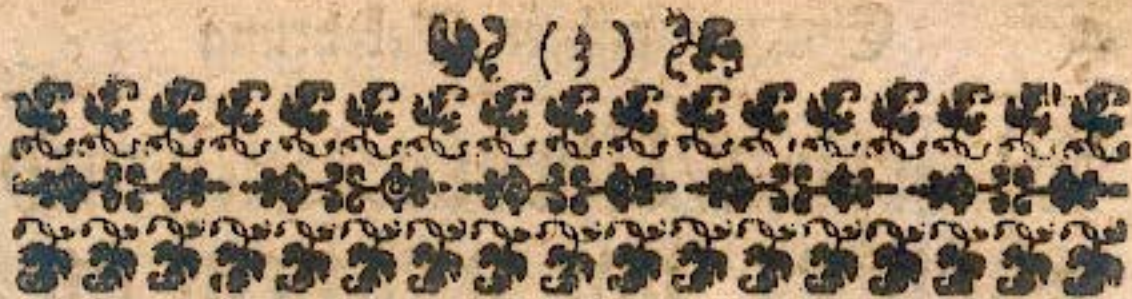 ( 3 )